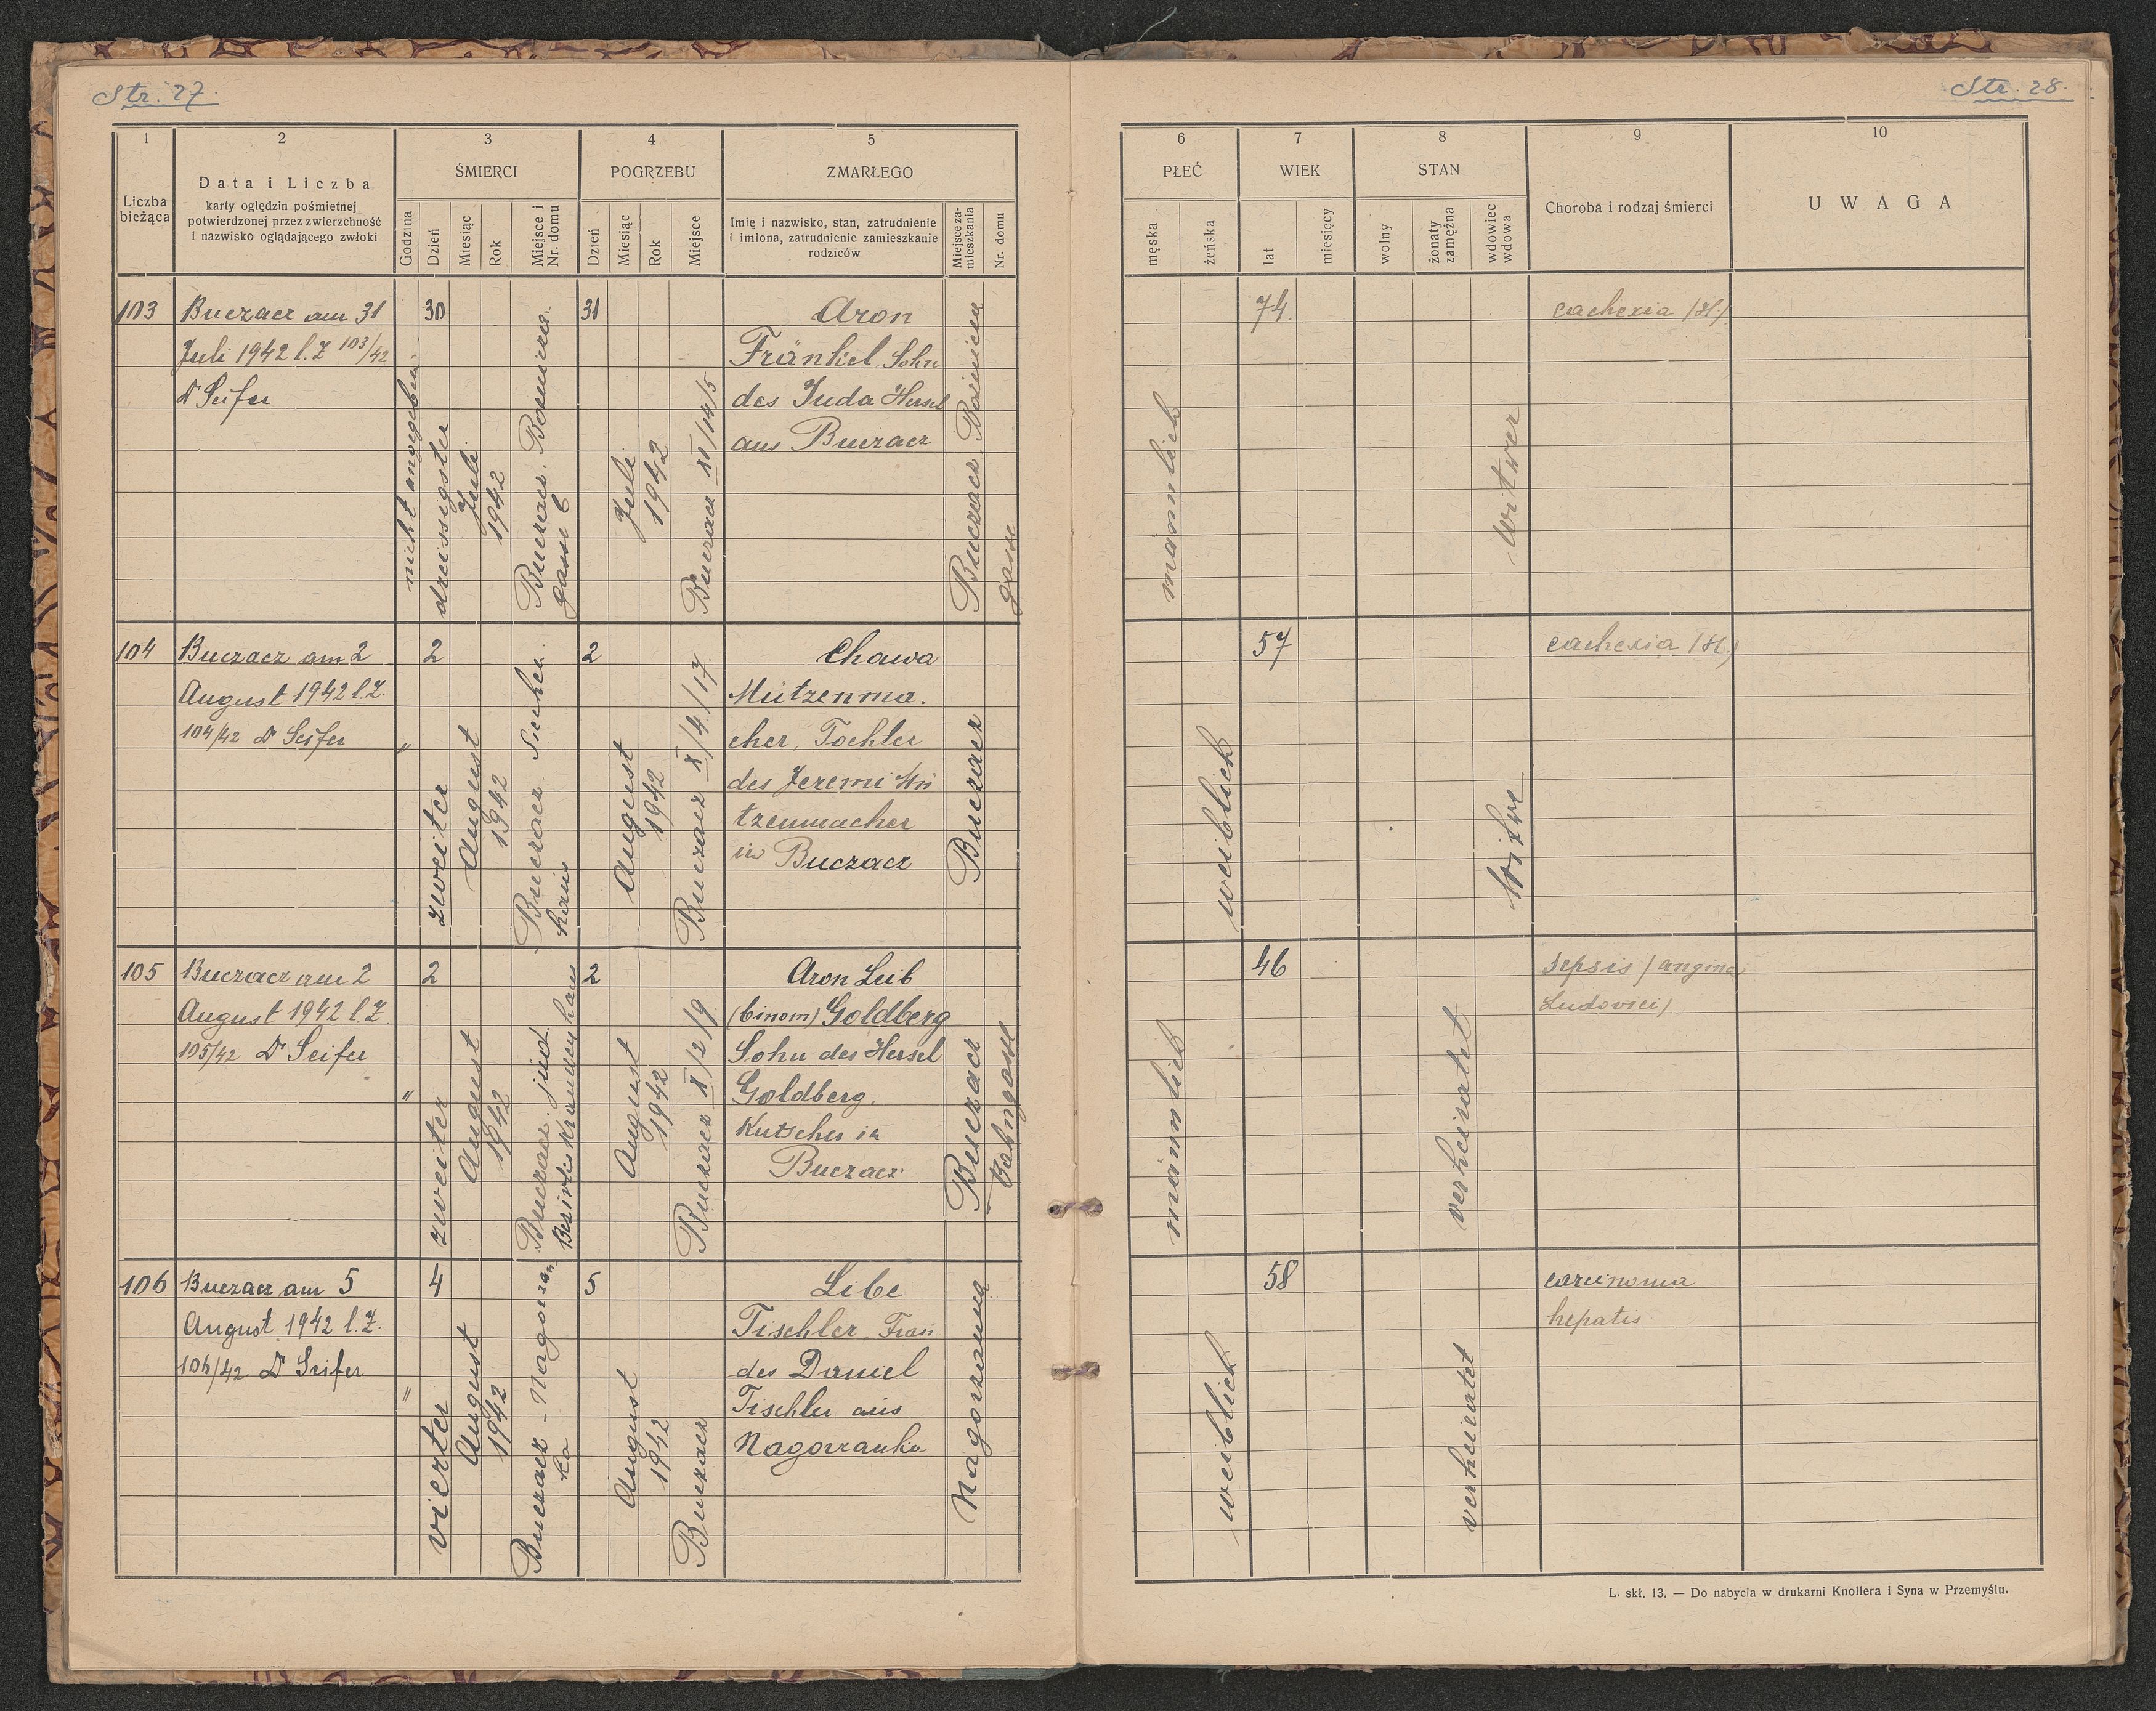 Str. 27.
1
2
3
4
5
ŚMIERCI
POGRZEBU
ZMARŁEGO
Liczba
bieżąca
Data i Liczba
karty oględzin pośmietnej
potwierdzonej przez zwierzchność
i nazwisko oglądającego zwłoki
Godzina
Dzień
Miesiąc
Rok
Miejsce i
Nr. domu
Dzień
Miesiąc
Rok
Miejsce
Imię i nazwisko, stan, zatrudnienie
i imiona, zatrudnienie zamieszkanie
rodziców
Miejsce za-
mieszkania
Nr. domu
103
Buczacz am 31
Juli 1942 l.Z 103/42
Dr Seifer
nicht angegeben
30
dreissigster
Juli
1942
Buczacz
gasse 6
31
Juli
1942
Buczacz XI/14/5
Aron
Fränkel, Sohn
des Juda Hersel
aus Buczacz
Buczacz
gasse
104
Buczacz am 2
August 1942 l.Z.
104/42 Dr Seifer
"
2
zweiter
August
1942
Buczacz Siechen
haus
2
August
1942
Buczacz X/4/17
Chawa
Mützenma.
cher, Tochter
des Jeremi Mü
tzenmacher
in Buczacz
Buczacz
105
Buczacz am 2
August 1942 l.Z.
105/42 Dr Seifer
"
2
zweiter
August
1942
Buczacz jüd.
Bezirkskrankenhaus
2
August
1942
Buczacz X/2/9
Aron Leib
(binom) Goldberg
Sohn des Hersel
Goldberg.
Kutscher in
Buczacz
Buczacz
Bahngasse
106
Buczacz am 5
August 1942 l.Z.
106/42 Dr Seifer
"
4
vierter
August
1942
Buczacz - Nagorzan
ka
5
August
1942
Buczacz
Libe
Tischler, Frau
des Daniel
Tischler aus
Nagorzanka
Nagorzanka
Str. 28.
6
7
8
9
10
PŁEĆ
WIEK
STAN
Choroba i rodzaj śmierci
UWAGA
męska
żeńska
lat
miesięcy
wolny
żonaty
zamężna
wdowiec
wdowa
männlich
74.
Witwer
cachexia
weiblich
57
Witwe
cachexia
männlich
46
verheiratet
sepsis (angina
Ludovici)
weiblich
58
verheiratet
carcinoma
hepatis
L. skł. 13. — Do nabycia w drukarni Knollera i Syna w Przemyślu.